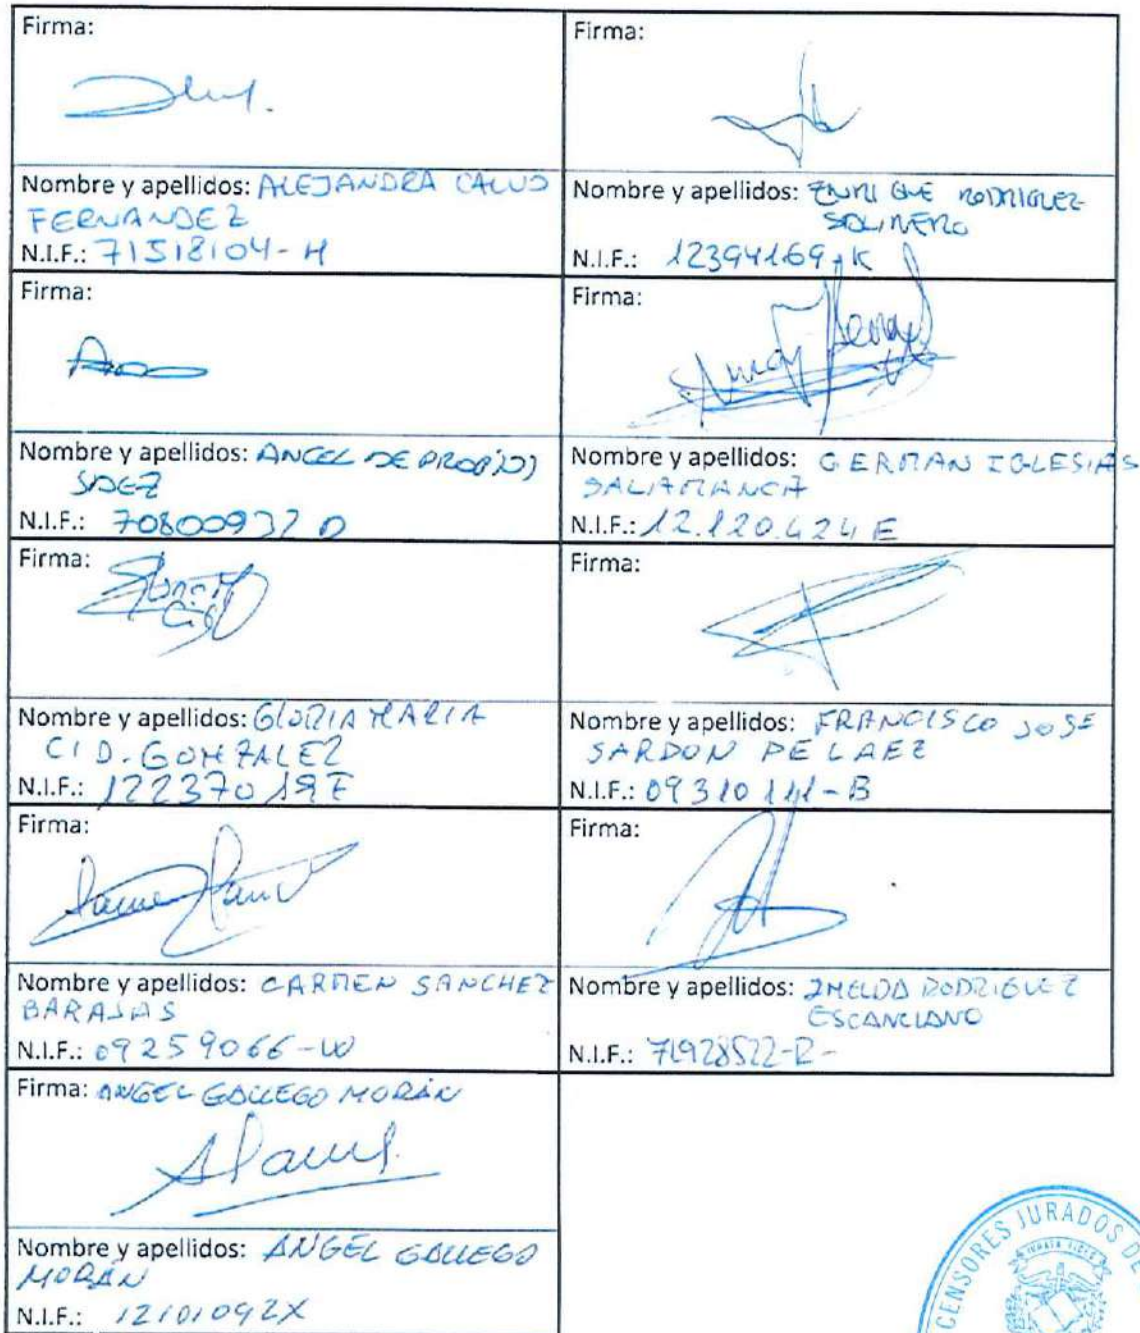 Firma:
Firma:
Nombre y apellidos: ALEJANDRA CALVO
FERNANDEZ
N.I.F.: 71518104-H
Nombre y apellidos: ENRIQUE RODRIGUEZ
SOLINERO
N.I.F.: 12394169-K
Firma:
Firma:
Nombre y apellidos: ANGEL DE PROPIOS
SAEZ
N.I.F.: 70800932 D
Nombre y apellidos: GERMAN IGLESIAS
SALAMANCA
N.I.F.: 12.120.424 E
Firma:
Firma:
Nombre y apellidos: GLORIA MARIA
CID. GONZALEZ
N.I.F.: 12237019F
Nombre y apellidos: FRANCISCO JOSE
SARDON PELAEZ
N.I.F.: 09310141-B
Firma:
Firma:
Nombre y apellidos: CARMEN SANCHEZ
BARAJAS
N.I.F.: 09259066-W
Nombre y apellidos: IMELDA RODRIGUEZ
ESCANCIANO
N.I.F.: 71928522-R-
Firma: ANGEL GALLEGO MORÁN
Nombre y apellidos: ANGEL GALLEGO
MORÁN
N.I.F.: 12101092X
CENSORES JURADOS DE